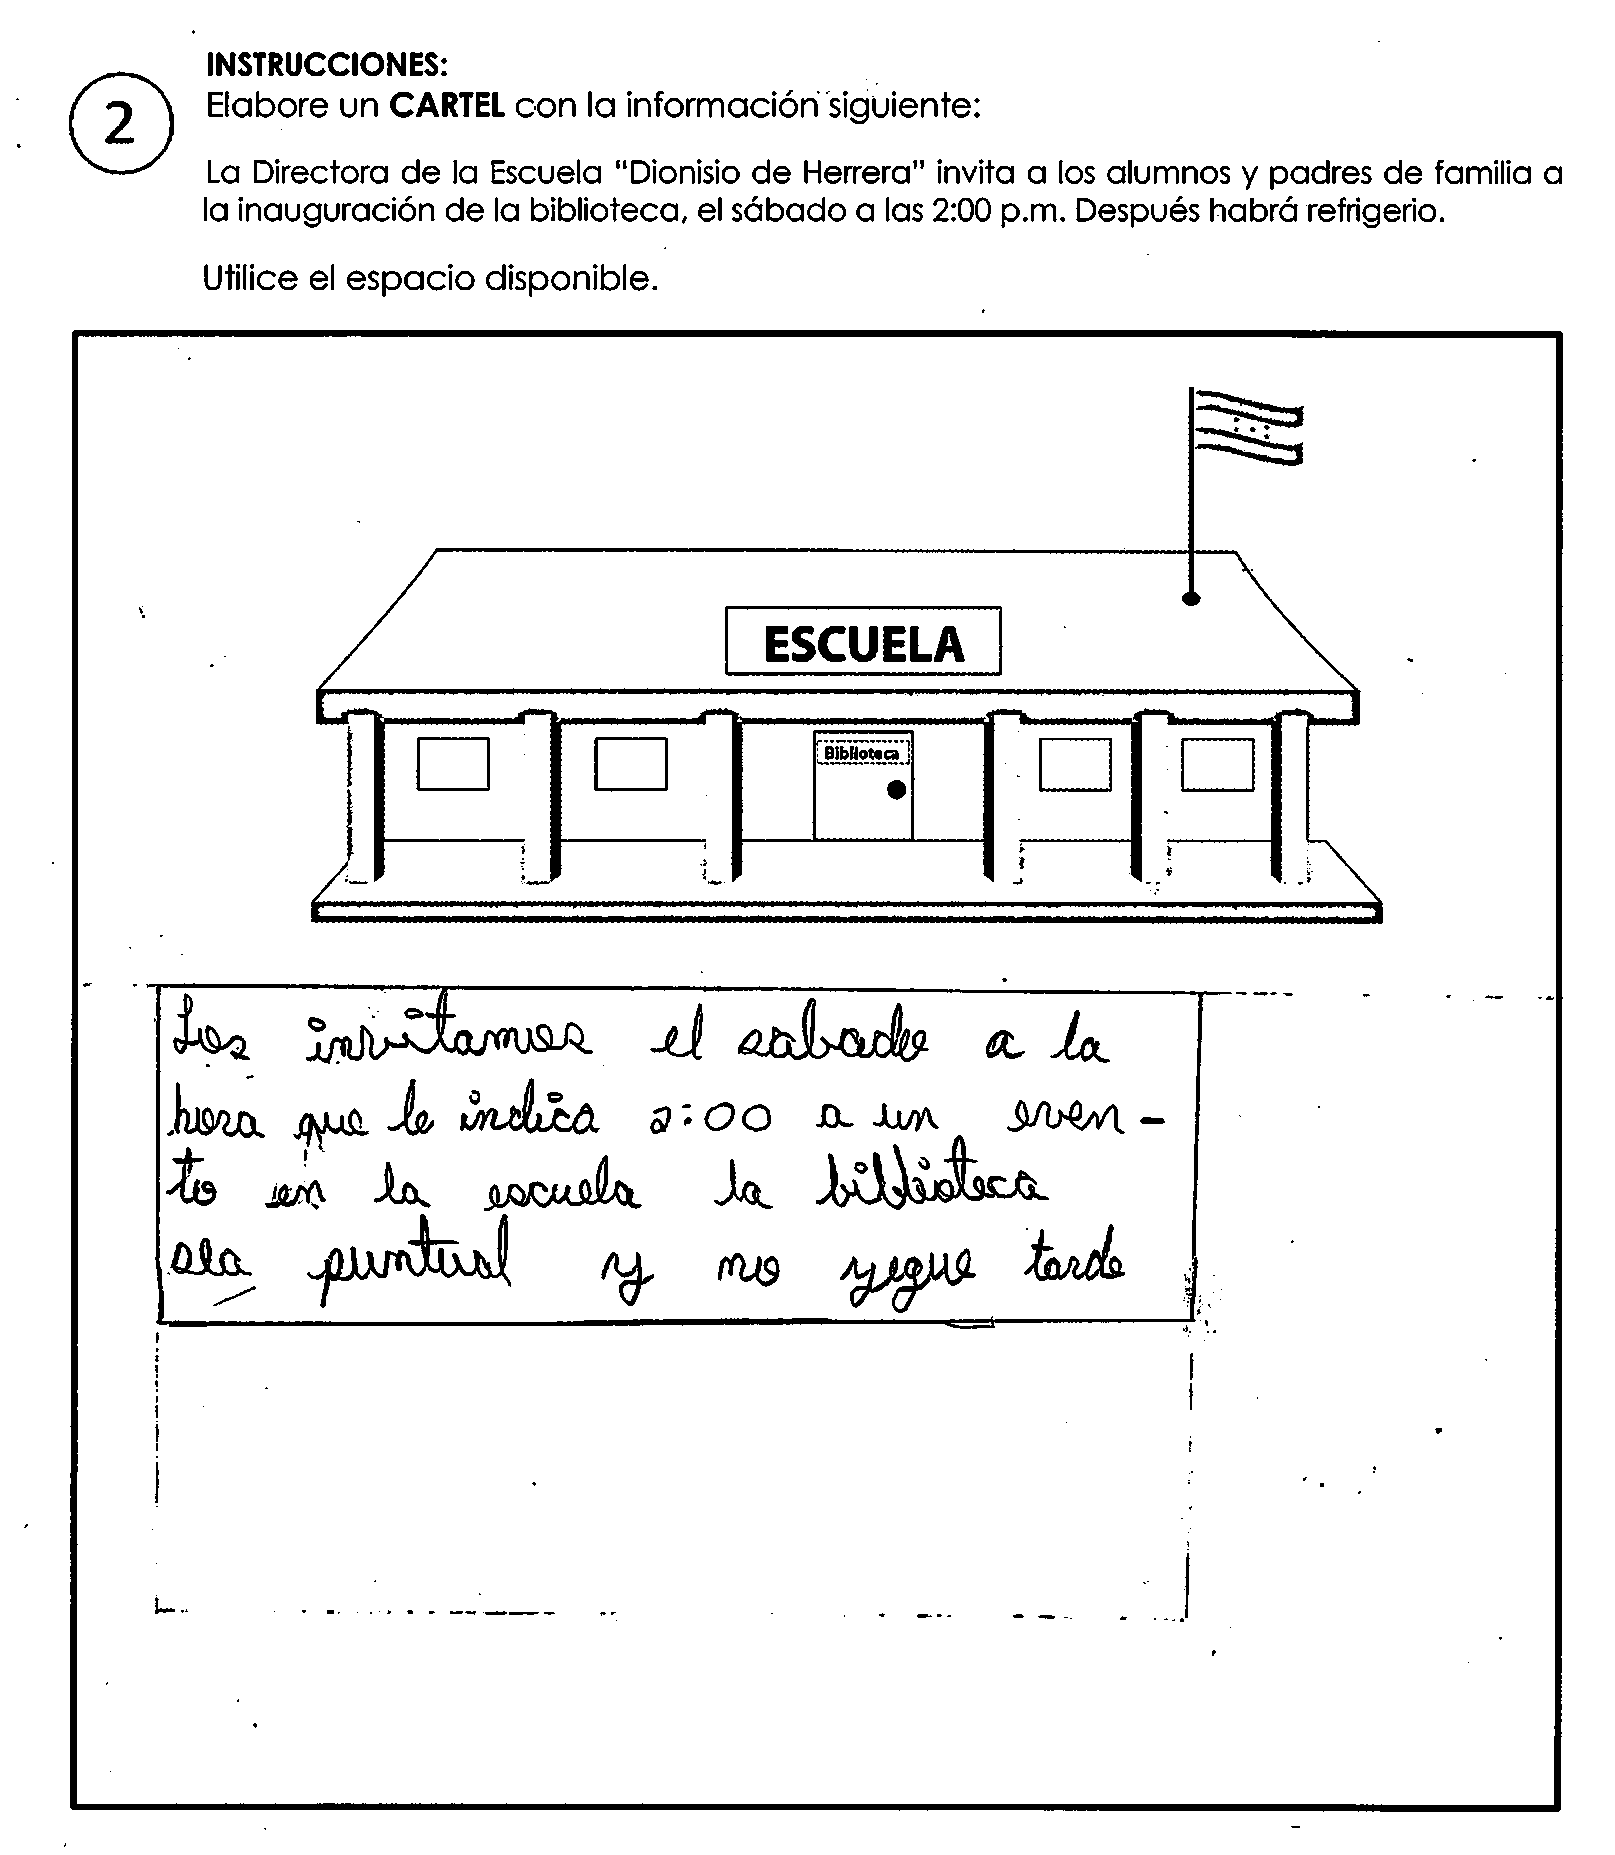 INSTRUCCIONES:
2
Elabore un CARTEL con la información siguiente:
La Directora de la Escuela "Dionisio de Herrera" invita a los alumnos y padres de familia a
la inauguración de la biblioteca, el sábado a las 2:00 p.m. Después habrá refrigerio.
Utilice el espacio disponible.
ESCUELA
Biblioteca
Los invitamos el sabado a la
hora que le indica 2:00 a un even-
to en la escuela la biblioteca
sea puntual y no yegue tarde